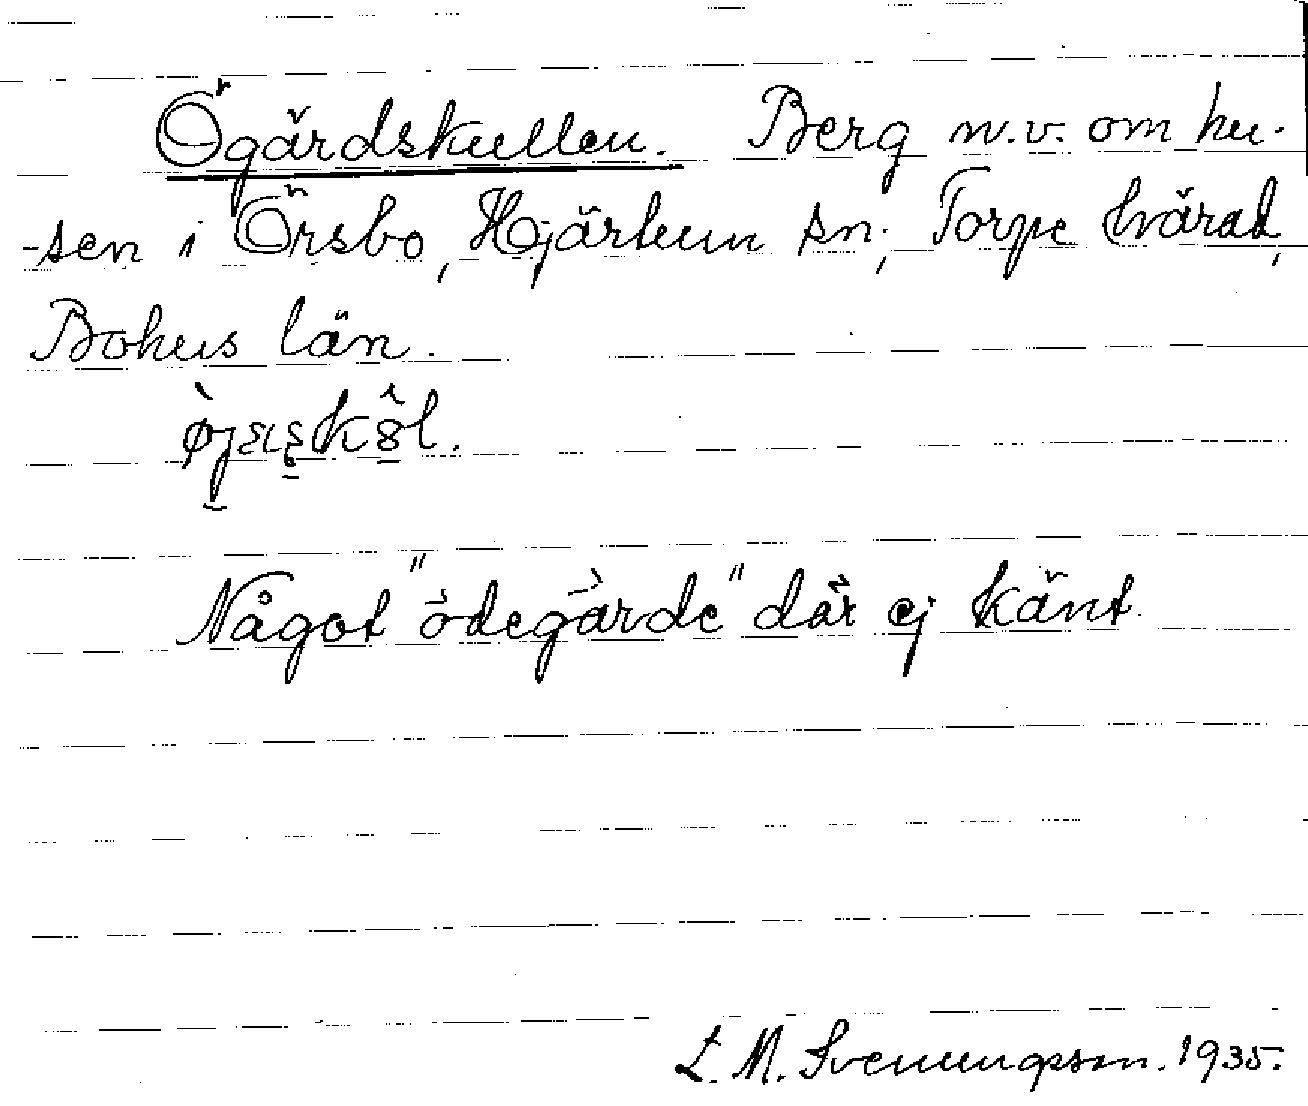 Ögärdskullen. Berg n.v. om hu-
-sen i Örsbo, Hjärtum sn; Torpe härad,
Bohus län.
Något "ödegärde" där ej känt.
L. M. Svenungsson. 1935.